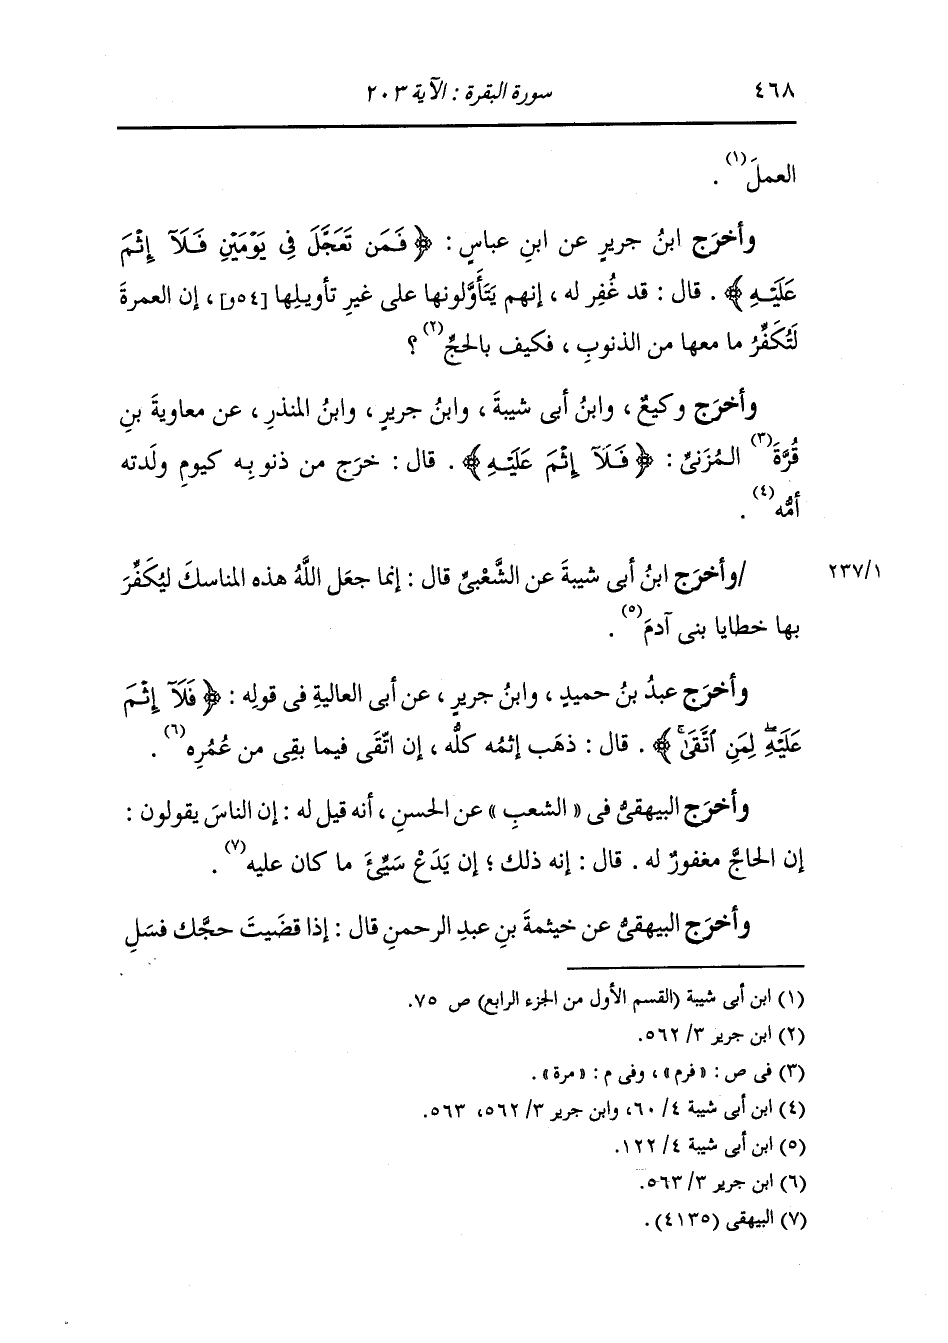 ٤٦٨ سورة البقرة : الآية ٢٠٣
العملَ(١) .
وأخرَج ابنُ جريرٍ عن ابنِ عباسٍ : ﴿ فَمَن تَعَجَّلَ فِى يَوْمَيْنِ فَلَآ إِثْمَ
عَلَيْهِ ﴾ . قال : قد غُفِر له ، إنهم يَتَأَوَّلونها على غيرِ تأويلِها [٥٤و] ، إن العمرةَ
لَتُكَفِّرُ ما معها من الذنوبِ ، فكيف بالحجِّ(٢) ؟
وأخرَج وكيعٌ ، وابنُ أبى شيبةَ ، وابنُ جريرٍ ، وابنُ المنذرِ ، عن معاويةَ بنِ
قُرَّةَ(٣) المُزَنىِّ : ﴿ فَلَآ إِثْمَ عَلَيْهِ ﴾ . قال : خرَج من ذنوبِه كيومِ ولَدته
أمُّه(٤) .
/وأخرَج ابنُ أبى شيبةَ عن الشَّعْبىِّ قال : إنما جعَل اللَّهُ هذه المناسكَ ليُكَفِّرَ ٢٣٧/١
بها خطايا بنى آدمَ(٥) .
وأخرَج عبدُ بنُ حميدٍ ، وابنُ جريرٍ ، عن أبى العاليةِ فى قولِه : ﴿ فَلَآ إِثْمَ
عَلَيْهِۖ لِمَنِ ٱتَّقَىٰۗ ﴾ . قال : ذهَب إثمُه كلُّه ، إن اتَّقَى فيما بقِى من عُمُرِه(٦) .
وأخرَج البيهقىُّ فى « الشعبِ » عن الحسنِ ، أنه قيل له : إن الناسَ يقولون :
إن الحاجَّ مغفورٌ له . قال : إنه ذلك ؛ إن يَدَعْ سَيِّئَ ما كان عليه(٧) .
وأخرَج البيهقىُّ عن خيثمةَ بنِ عبدِ الرحمنِ قال : إذا قضَيتَ حجَّك فسَلِ
(١) ابن أبى شيبة (القسم الأول من الجزء الرابع) ص ٧٥.
(٢) ابن جرير ٣/ ٥٦٢.
(٣) فى ص : «فرم» ، وفى م : «مرة» .
(٤) ابن أبى شيبة ٤/ ٦٠، وابن جرير ٣/ ٥٦٢، ٥٦٣.
(٥) ابن أبى شيبة ٤/ ١٢٢.
(٦) ابن جرير ٣/ ٥٦٣.
(٧) البيهقى (٤١٣٥).